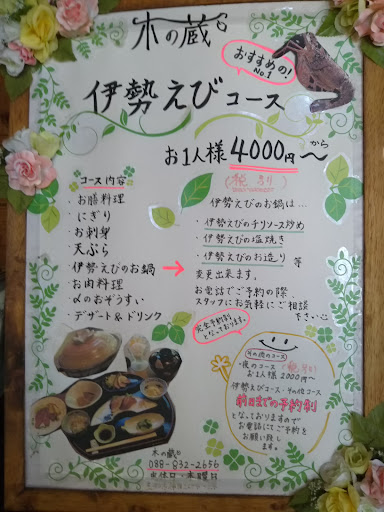 木の蔵
おすすめの!
No.1
伊勢えびコース
お1人様 4000円〜から
(税別)
コース内容
・お膳料理
・にぎり
・お刺身
・天ぷら
・伊勢えびのお鍋 →
・お肉料理
・〆のおぞうすい
・デザート&ドリンク
伊勢えびのお鍋は…
・伊勢えびのチリソース炒め
・伊勢えびの塩焼き
・伊勢えびのお造り 等
変更出来ます。
お電話でご予約の際
スタッフにお気軽にご相談
下さい
完全予約制
となっております。
その他のコース
・夜のコース (税別)
お1人様 2000円〜
伊勢えびコース・その他コース
前日までの予約制
となっておりますので
お電話にてご予約を
お願い致し
ます。
木の蔵
088-832-2656
定休日・木曜日